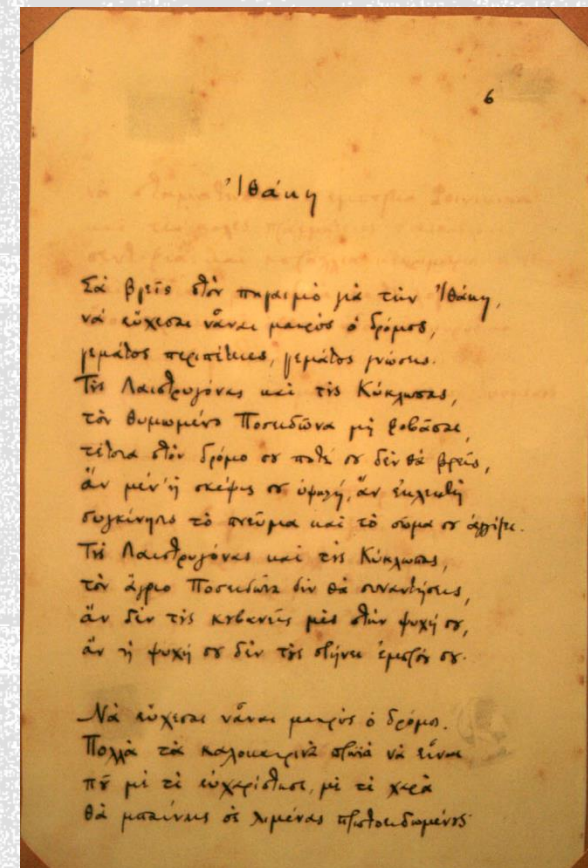 6
Ἰθάκη
Σὰ βγεῖς στὸν πηγαιμὸ γιὰ τὴν Ἰθάκη,
νὰ εὔχεσαι νἆναι μακρὺς ὁ δρόμος,
γεμάτος περιπέτειες, γεμάτος γνώσεις.
Τοὺς Λαιστρυγόνας καὶ τοὺς Κύκλωπας,
τὸν θυμωμένο Ποσειδῶνα μὴ φοβᾶσαι,
τέτοια στὸν δρόμο σου ποτέ σου δὲν θὰ βρεῖς,
ἂν μέν' ἡ σκέψις σου ὑψηλή, ἂν ἐκλεκτὴ
συγκίνησις τὸ πνεῦμα καὶ τὸ σῶμα σου ἀγγίζει.
Τοὺς Λαιστρυγόνας καὶ τοὺς Κύκλωπας,
τὸν ἄγριο Ποσειδῶνα δὲν θὰ συναντήσεις,
ἂν δὲν τοὺς κουβανεῖς μὲς στὴν ψυχή σου,
ἂν ἡ ψυχή σου δὲν τοὺς στήνει ἐμπρός σου.
Νὰ εὔχεσαι νἆναι μακρὺς ὁ δρόμος.
Πολλὰ τὰ καλοκαιρινὰ πρωϊὰ νὰ εἶναι
ποῦ μὲ τὶ εὐχαρίστησι, μὲ τὶ χαρὰ
θὰ μπαίνεις σὲ λιμένας πρωτοειδωμένους·